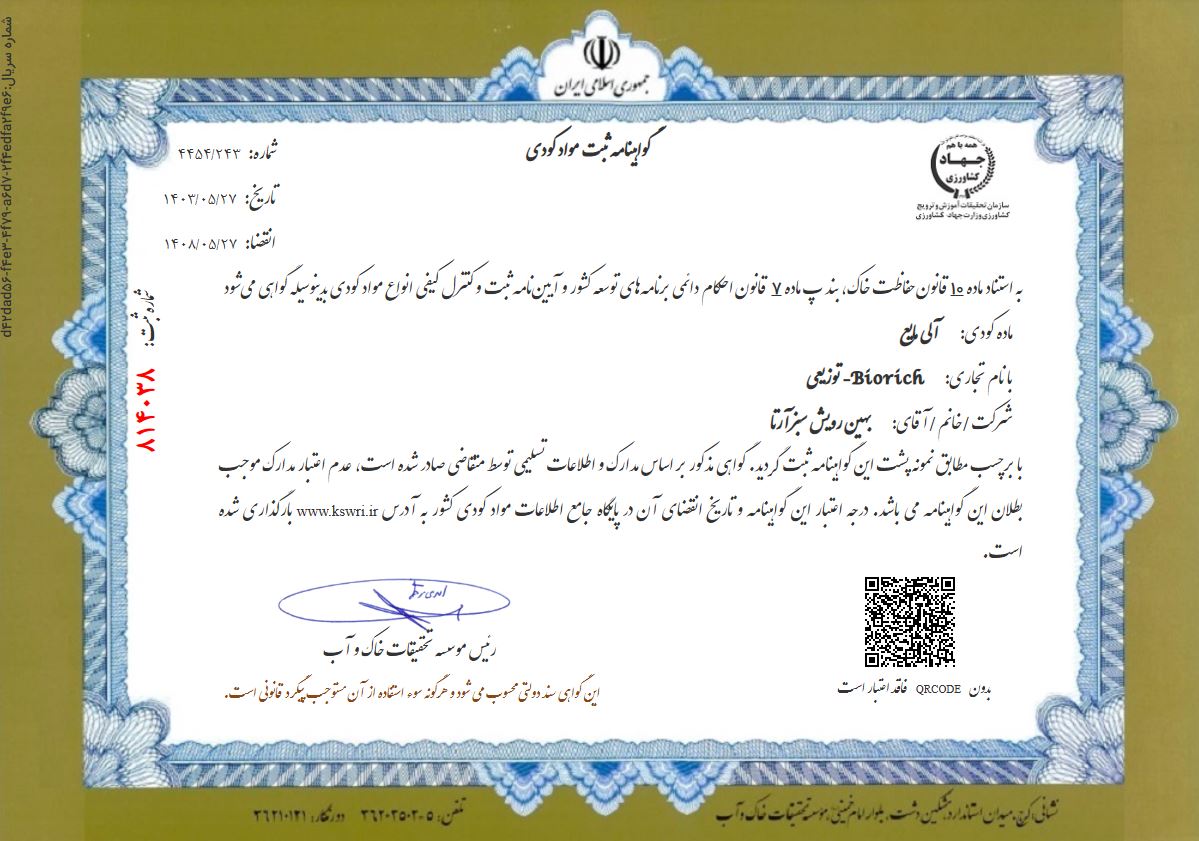 جمهوری اسلامی ایران
همه با هم
جهاد
کشاورزی
سازمان تحقیقات آموزش و ترویج
کشاورزی وزارت جهاد کشاورزی
گواهینامه ثبت مواد کودی
شماره: ۴۴۵۴/۲۴۳
تاریخ: ۱۴۰۳/۰۵/۲۷
انقضا: ۱۴۰۸/۰۵/۲۷
به استناد ماده ۱۰ قانون حفاظت خاک، بند پ ماده ۷ قانون احکام دائمی برنامه های توسعه کشور و آیین نامه ثبت و کنترل کیفی انواع مواد کودی بدینوسیله گواهی می شود
ماده کودی: آلی مایع
با نام تجاری: Biorich- توزیعی
شرکت / خانم / آقای: بهین رویش سبز آرتا
با برچسب مطابق نمونه پشت این گواهینامه ثبت گردید. گواهی مذکور بر اساس مدارک و اطلاعات تسلیمی توسط متقاضی صادر شده است، عدم اعتبار مدارک موجب
بطلان این گواهینامه می باشد. درجه اعتبار این گواهینامه و تاریخ انقضای آن در پایگاه جامع اطلاعات مواد کودی کشور به آدرس www.kswri.ir بارگذاری شده
است.
شماره ثبت:
۸۱۴۰۳۸
رئیس موسسه تحقیقات خاک و آب
این گواهی سند دولتی محسوب می شود و هرگونه سوء استفاده از آن مستوجب پیگرد قانونی است.
بدون QRCODE فاقد اعتبار است
نشانی: کرج، میدان استاندارد، مشکین دشت، بلوار امام خمینی، مؤسسه تحقیقات خاک و آب
تلفن: ۵-۳۶۲۰۳۵۰۲ دورنگار: ۳۶۲۱۰۱۲۱
شماره سریال: